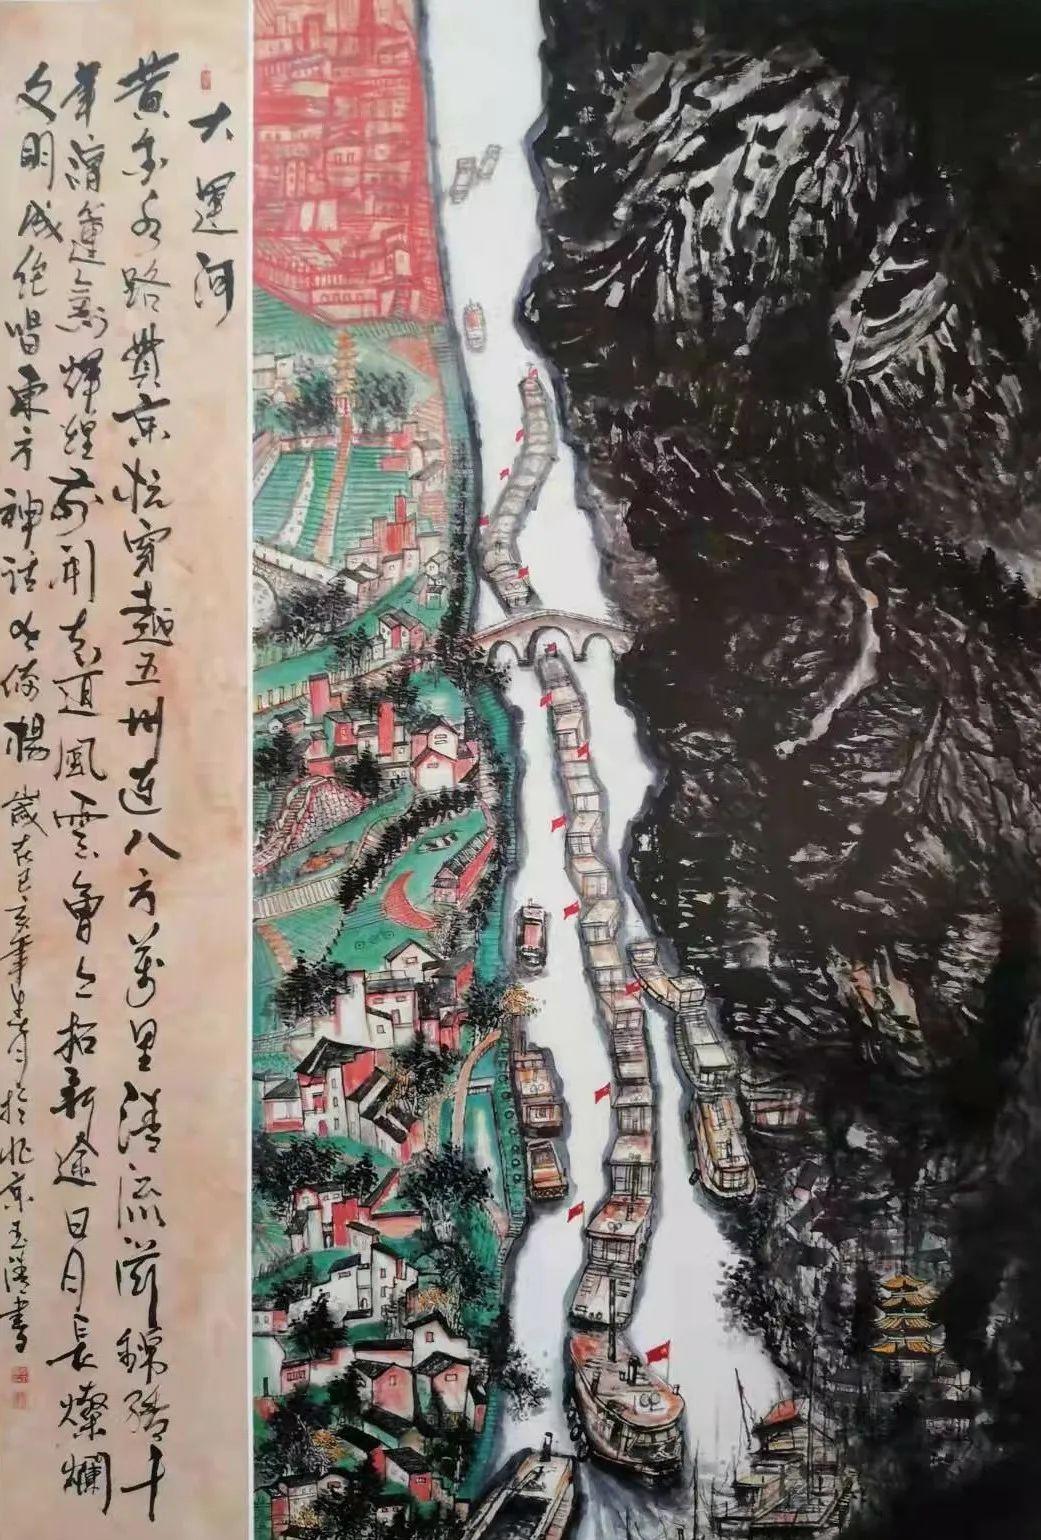 大運河
黄金水路貫京杭穿越五州連八方萬里清流滋錦绣十
年漕運創輝煌前開古道風雲會今拓新途日月長燦爛
文明成绝唱東方神話永傳揚 歲在己亥年月於北京玉書